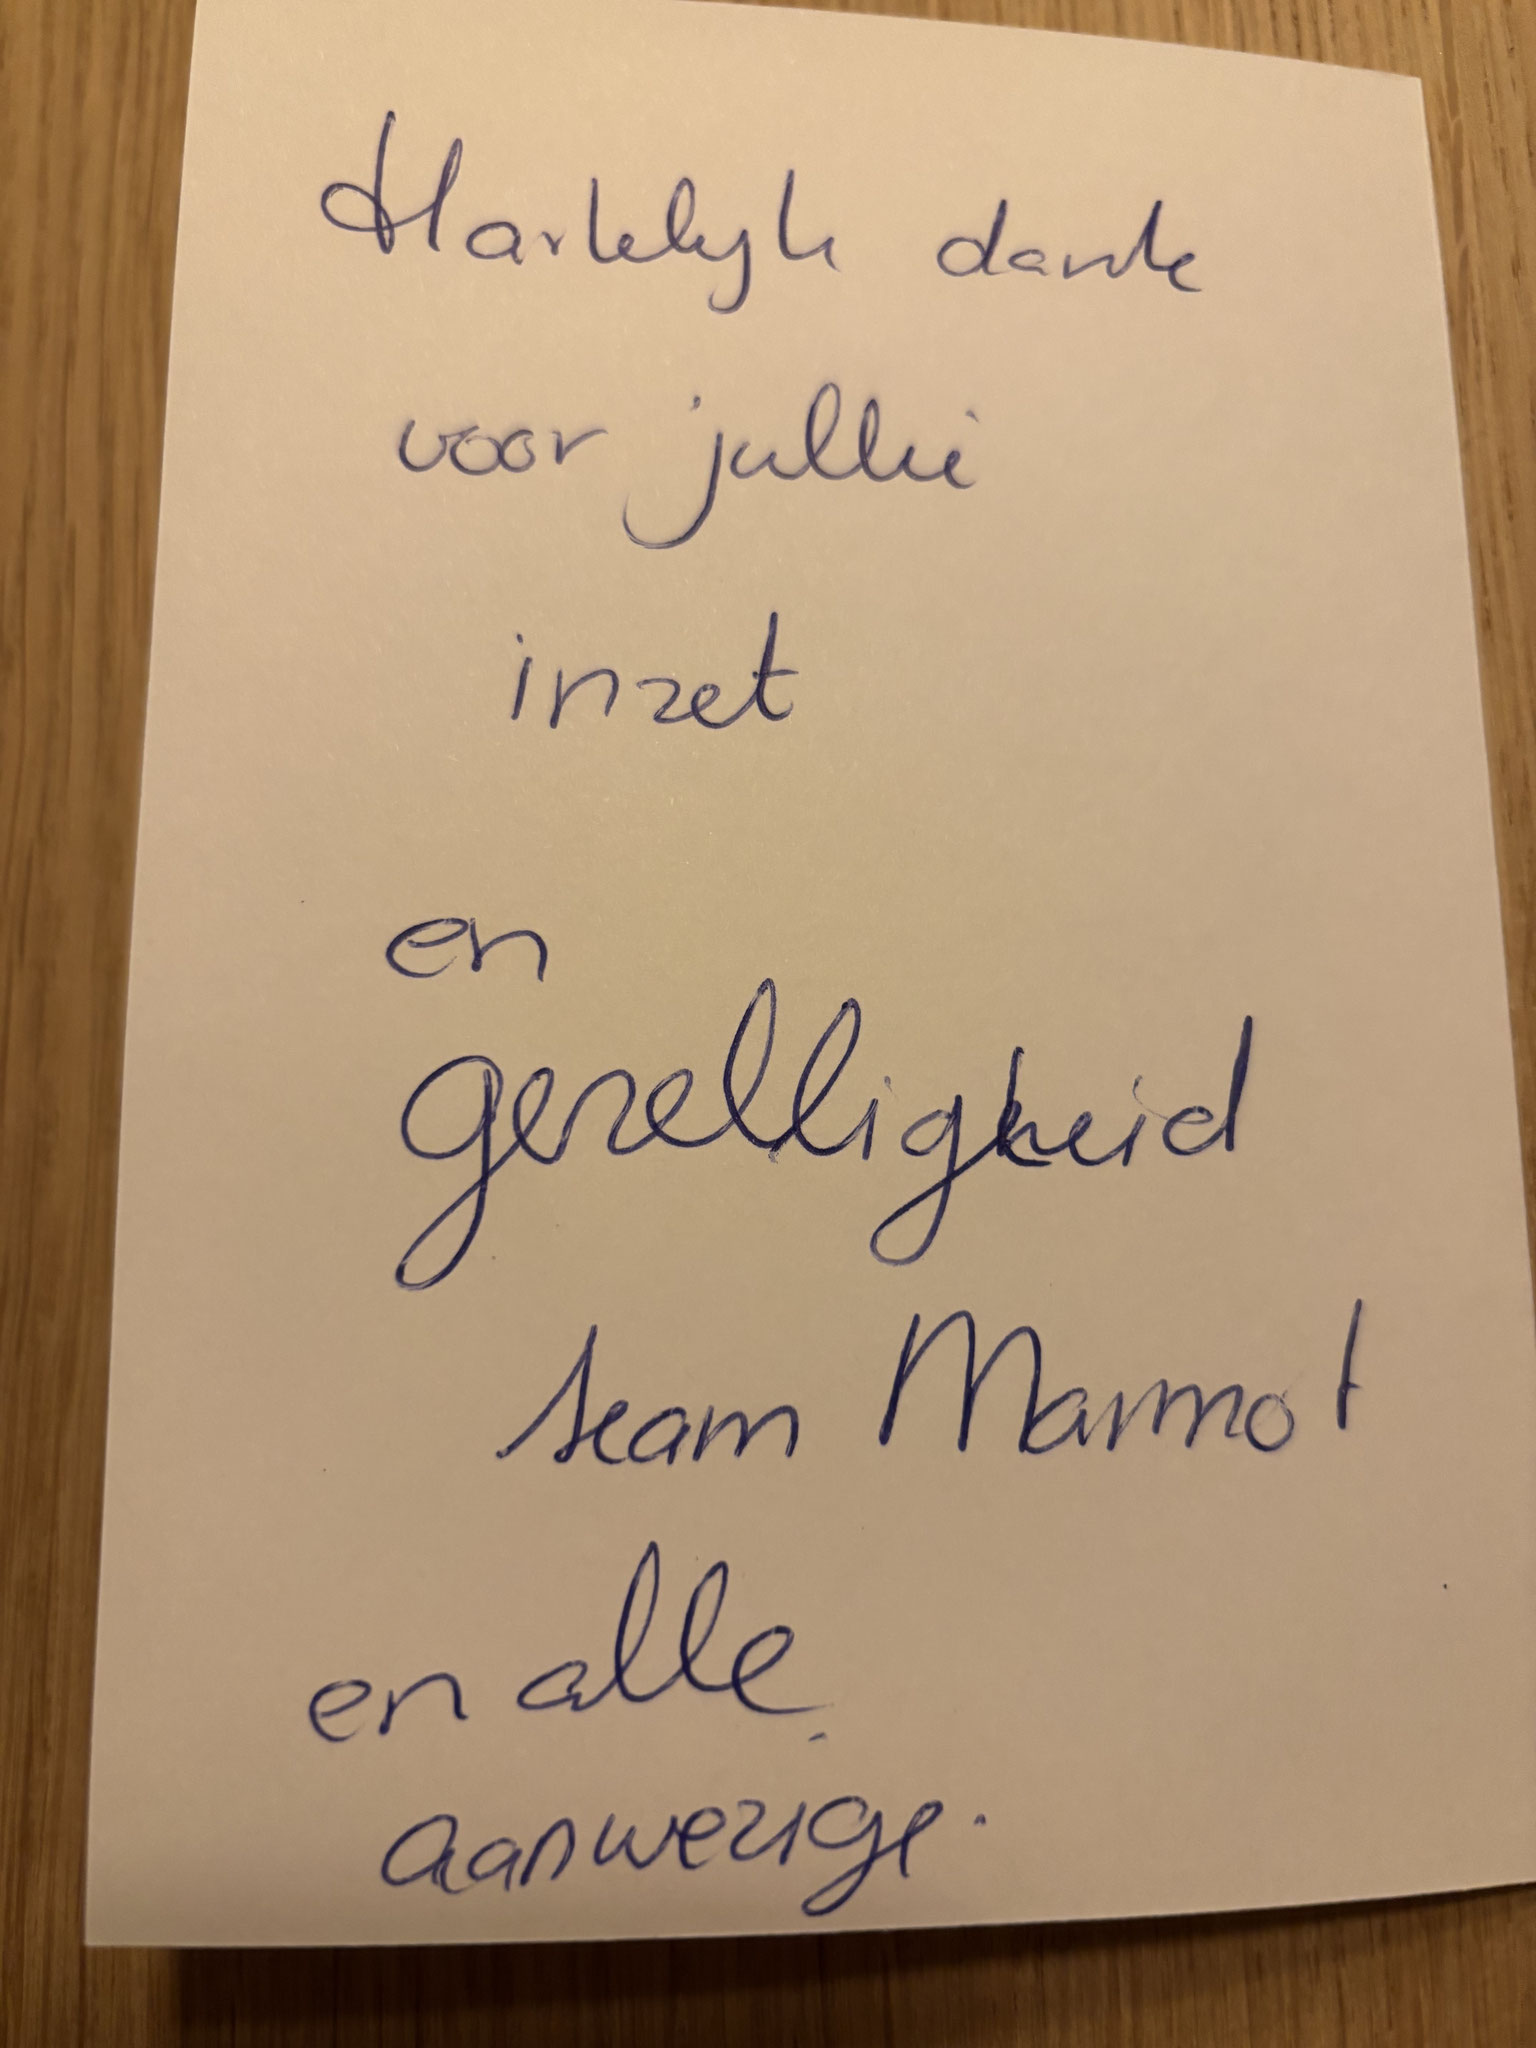 Hartelijk dank
voor jullie
inzet
en
gezelligheid
team Marmot
en alle
aanwezige.